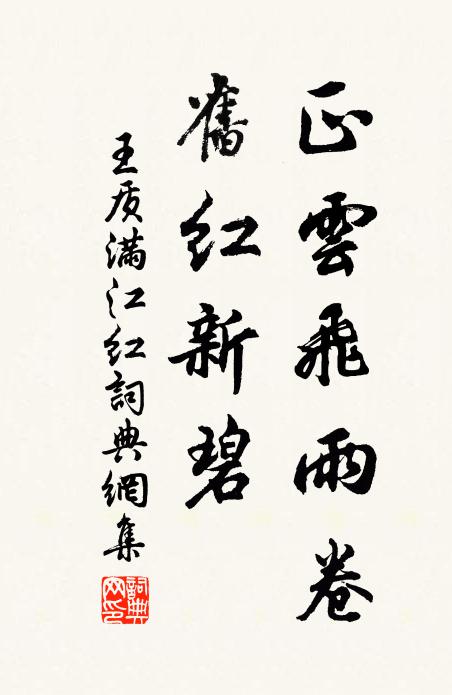 正雲飛雨卷
舊紅新碧
王质滿江红詞典網集
詞典
网印